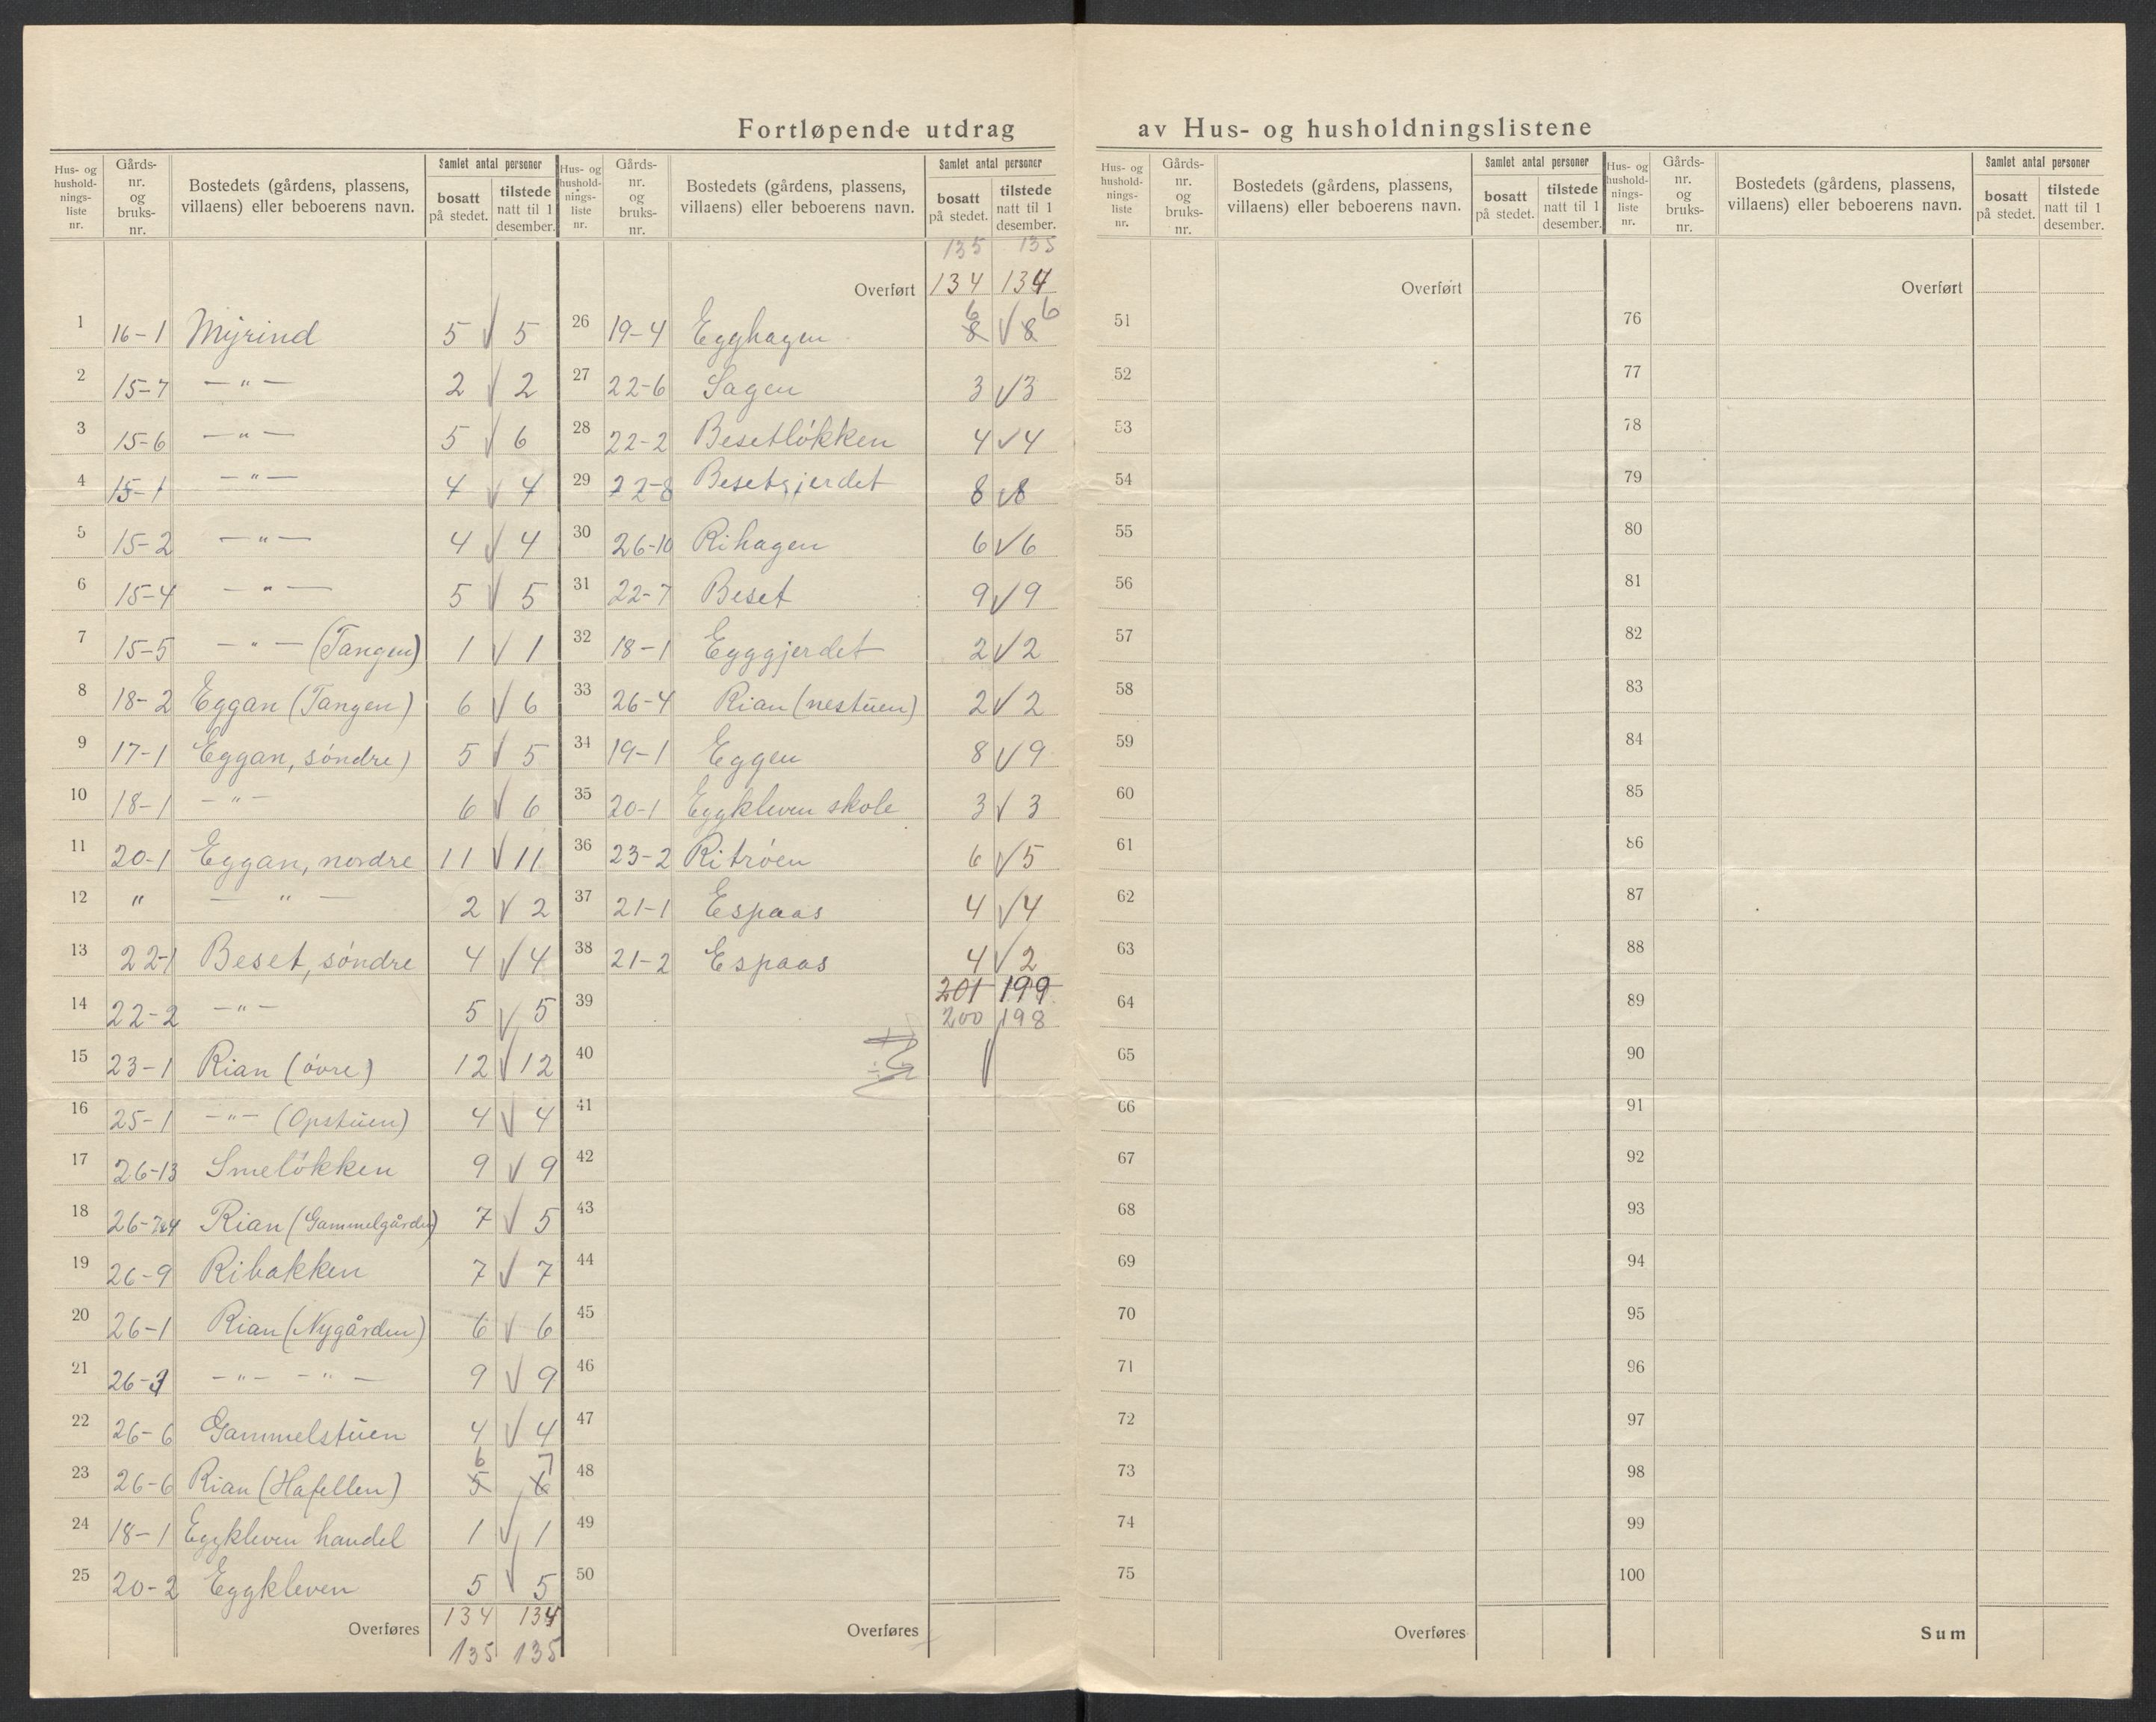 Fortløpende utdrag av Hus- og husholdningslistene
Hus- og hushold-nings-liste nr. Gårds-nr. og bruks-nr. Bostedets (gårdens, plassens, villaens) eller beboerens navn. Samlet antal personer bosatt på stedet. tilstede natt til 1 desember.
1 16-1 Myrind 5 √ 5
2 15-7 —"— 2 √ 2
3 15-6 —"— 5 √ 6
4 15-1 —"— 4 √ 4
5 15-2 —"— 4 √ 4
6 15-4 —"— 5 √ 5
7 15-5 —"— (Tangen) 1 √ 1
8 18-2 Eggan (Tangen) 6 √ 6
9 17-1 Eggan, søndre) 5 √ 5
10 18-1 —"— 6 √ 6
11 20-1 Eggan, nordre 11 √ 11
12 " —"— 2 √ 2
13 22-1 Beset, søndre 4 √ 4
14 22-2 —"— 5 √ 5
15 23-1 Rian (øvre) 12 √ 12
16 25-1 —"— (Opstuen) 4 √ 4
17 26-13 Smeløkken 9 √ 9
18 26-7 Rian (Gammelgården) 7 √ 5
19 26-9 Ribakken 7 √ 7
20 26-1 Rian (Nygården) 6 √ 6
21 26-3 —"— —"— 9 √ 9
22 26-6 Gammelstuen 4 √ 4
6 7
23 26-6 Rian (Hafellen) 5 6
24 18-1 Eggkleven handel 1 √ 1
25 20-2 Eggkleven 5 √ 5
Overføres 134 134
135 135
Hus- og hushold-nings-liste nr. Gårds-nr. og bruks-nr. Bostedets (gårdens, plassens, villaens) eller beboerens navn. Samlet antal personer bosatt på stedet. tilstede natt til 1 desember.
135 135
Overført 134 134
6 6
26 19-4 Egghagen 8 √ 8
27 22-6 Sagen 3 √ 3
28 22-2 Besetløkken 4 √ 4
29 22-8 Besetgjerdet 8 √ 8
30 26-10 Rihagen 6 √ 6
31 22-7 Beset 9 √ 9
32 18-1 Egggjerdet 2 √ 2
33 26-4 Rian (nestuen) 2 √ 2
34 19-1 Eggen 8 √ 9
35 20-1 Eggkleven skole 3 √ 3
36 23-2 Ritrøen 6 √ 5
37 21-1 Espaas 4 √ 4
38 21-2 Espaas 4 √ 2
201 199
39 200 198
40 √
41
42
43
44
45
46
47
48
49
50
Overføres
Hus- og hushold-nings-liste nr. Gårds-nr. og bruks-nr. Bostedets (gårdens, plassens, villaens) eller beboerens navn. Samlet antal personer bosatt på stedet. tilstede natt til 1 desember.
Overført
51
52
53
54
55
56
57
58
59
60
61
62
63
64
65
66
67
68
69
70
71
72
73
74
75
Overføres
Hus- og hushold-nings-liste nr. Gårds-nr. og bruks-nr. Bostedets (gårdens, plassens, villaens) eller beboerens navn. Samlet antal personer bosatt på stedet. tilstede natt til 1 desember.
Overført
76
77
78
79
80
81
82
83
84
85
86
87
88
89
90
91
92
93
94
95
96
97
98
99
100
Sum